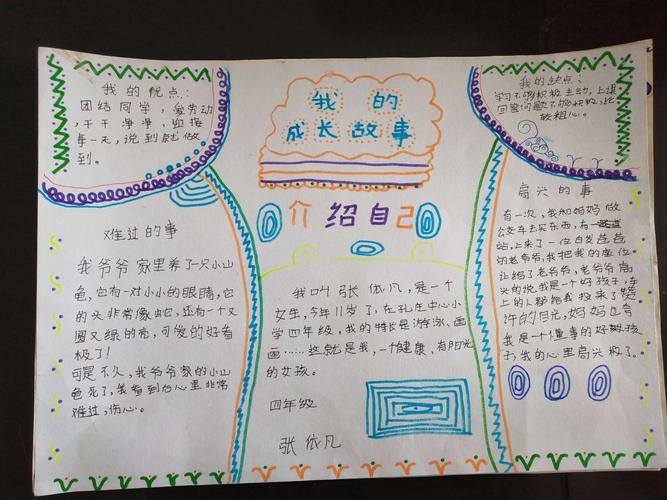 我的优点:
团结同学,爱劳动
,干干净净,迎接
每一天,说到就做
到。
难过的事
我爷爷家里养了一只小山
龟,它有一对小小的眼睛,它
的头非常像蛇,还有一个又
圆又绿的壳,可爱的好看
极了!
可是不久,我爷爷家的小山
龟死了,我看到后心里非常
难过,伤心。
我的
成长故事
介绍自己
我叫张依凡,是一个
女生,今年11岁了,在孔庄中心小
学四年级,我的特长是游泳、画
画……这就是我,一个健康,有阳光
的女孩。
四年级
张依凡
我的缺点:
学习不够积极主动,上课
回答问题不够积极,比
较粗心。
高兴的事
有一次,我和妈妈做
公交车去买东西,有一
站,上来了一位白发苍苍
的老爷爷,我把我的座位
让给了老爷爷,老爷爷高
兴的说,我是一个好孩子,车
上的人都给我投来了赞
许的目光,妈妈也夸
我是一个懂事的好孩子
我的心里高兴极了。